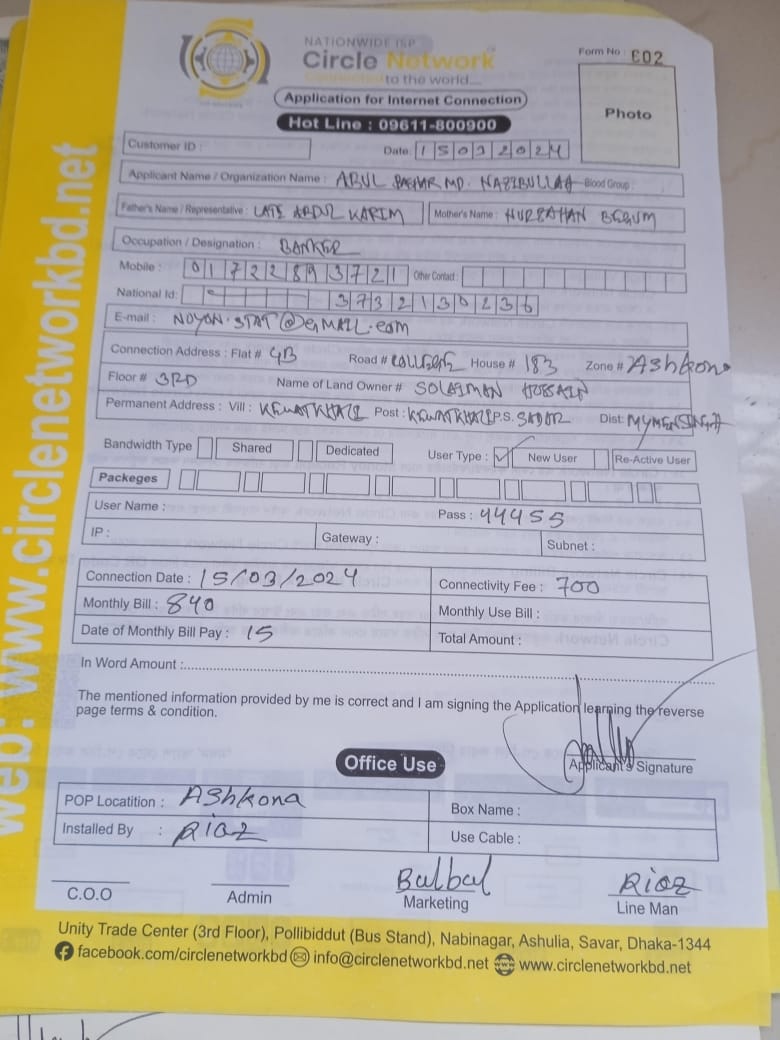 NATIONWIDE ISP
Circle Network
Connected to the world....
Form No : 602
Application for Internet Connection
Hot Line : 09611-800900
Photo
Customer ID :
Date 15032024
Applicant Name / Organization Name : ABUL BASHAR MD. NAZIBULLAH Blood Group :
Father's Name / Representative : LATE ABDUL KARIM Mother's Name : NURJAHAN BEGUM
Occupation / Designation : BANKER
Mobile : 01722893721 Other Contact :
National Id: 3732130236
E-mail : NOYON.STAT@GMAIL.com
Connection Address : Flat # 4B Road # COLLEGE House # 183 Zone # Ashkona
Floor # 3RD Name of Land Owner # SOLAIMAN HOSSAIN
Permanent Address : Vill : KEWATKHALI Post : KEWATKHALI P.S. SADOR Dist: MYMENSINGH
Bandwidth Type Shared Dedicated User Type : New User Re-Active User
Packeges
User Name : Pass : 44455
IP : Gateway : Subnet :
Connection Date : 15/03/2024 Connectivity Fee : 700
Monthly Bill : 840 Monthly Use Bill :
Date of Monthly Bill Pay : 15 Total Amount :
In Word Amount :
The mentioned information provided by me is correct and I am signing the Application learning the reverse
page terms & condition.
Applicant's Signature
Office Use
POP Locatition : Ashkona Box Name :
Installed By : Riaz Use Cable :
Bulbul Riaz
C.O.O Admin Marketing Line Man
Unity Trade Center (3rd Floor), Pollibiddut (Bus Stand), Nabinagar, Ashulia, Savar, Dhaka-1344
facebook.com/circlenetworkbd info@circlenetworkbd.net www.circlenetworkbd.net
web: www.circlenetworkbd.net